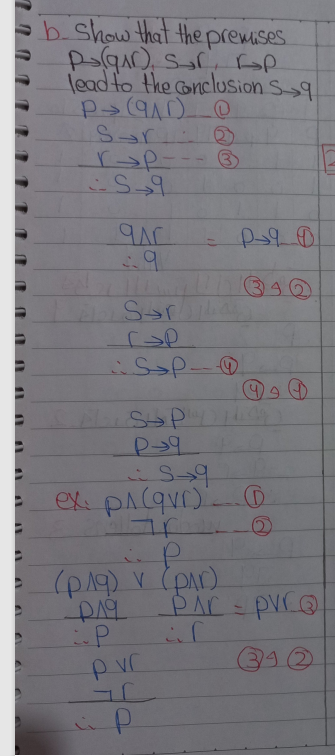 b. Show that the premises
p→(q∧r), s→r, r→p
lead to the conclusion s→q
p→(q∧r) --- ①
s→r --- ②
r→p --- ③
∴ s→q
q∧r = p→q ①
∴ q
③ و ②
s→r
r→p
∴ s→p -- ④
④ و ①
s→p
p→q
∴ s→q
ex: p∧(q∨r) --- ①
¬r --- ②
∴ p
(p∧q) ∨ (p∧r)
p∧q p∧r = p∨r ③
∴ p ∴ r
p∨r ③ و ②
¬r
∴ p